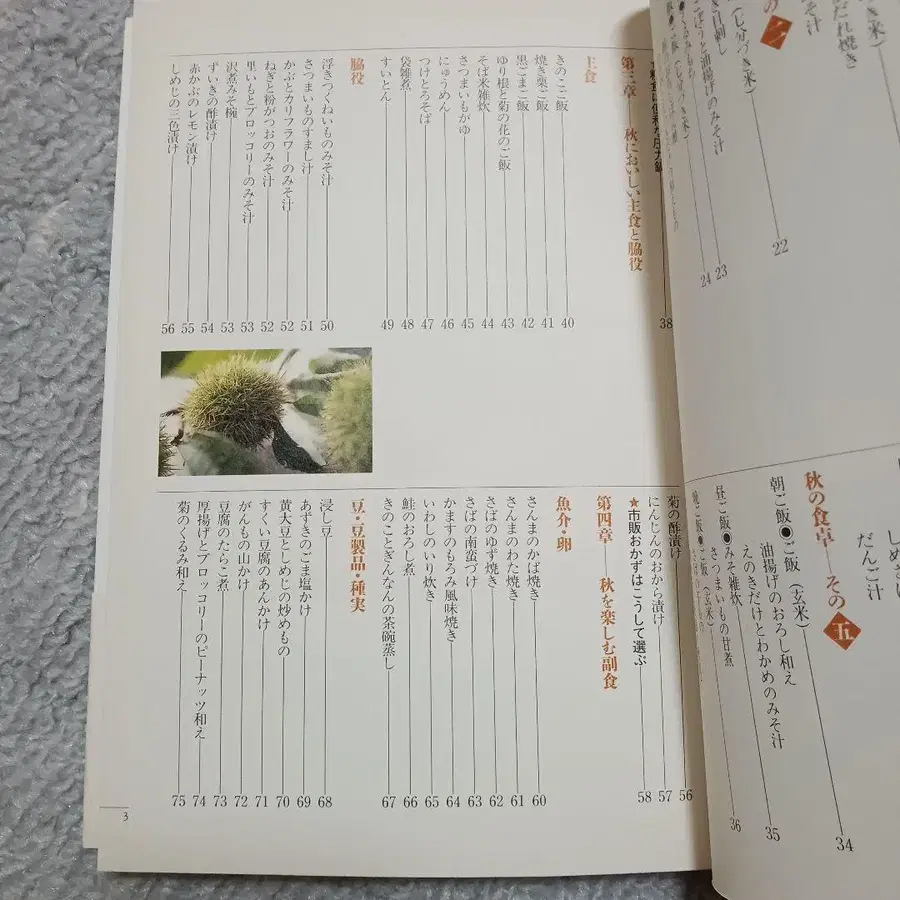 の 二
だれ焼き
汁
ごぼうと油揚げのみそ汁
22
23
24
だんご汁
秋の食卓——その五
34
朝ご飯●ご飯（玄米）
油揚げのおろし和え
えのきだけとわかめのみそ汁
35
昼ご飯●みそ雑炊
さつまいもの甘煮
36
38
第三章——秋においしい主食と脇役
主食
きのこご飯 40
焼き栗ご飯 41
黒ごまご飯 42
ゆり根と菊の花のご飯 43
そば米雑炊 44
さつまいもがゆ 45
にゅうめん 46
つけとろそば 47
袋雑煮 48
すいとん 49
脇役
浮きつくねいものみそ汁 50
さつまいものすまし汁 51
かぶとカリフラワーのみそ汁 52
ねぎと粉がつおのみそ汁 52
里いもとブロッコリーのみそ汁 53
沢煮みそ椀 53
ずいきの酢漬け 54
赤かぶのレモン漬け 55
しめじの三色漬け 56
菊の酢漬け 56
にんじんのおから漬け 57
★市販おかずはこうして選ぶ 58
第四章——秋を楽しむ副食
魚介・卵
さんまのかば焼き 60
さんまのわた焼き 61
さばのゆず焼き 62
さばの南蛮づけ 63
かますのもろみ風味焼き 64
いわしのいり炊き 65
鮭のおろし煮 66
きのことぎんなんの茶碗蒸し 67
豆・豆製品・種実
浸し豆 68
あずきのごま塩かけ 69
黄大豆としめじの炒めもの 70
すくい豆腐のあんかけ 71
がんもの山かけ 72
豆腐のたらこ煮 73
厚揚げとブロッコリーのピーナッツ和え 74
菊のくるみ和え 75
3